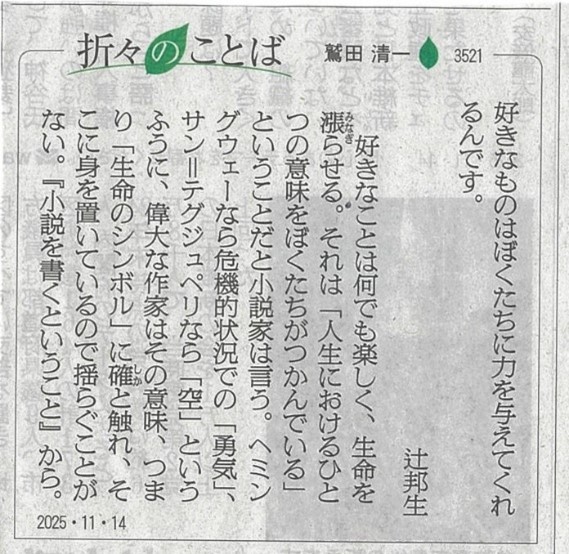 折々のことば
鷲田 清一
3521
好きなものはぼくたちに力を与えてくれ
るんです。
辻邦生
好きなことは何でも楽しく、生命を
漲らせる。それは「人生におけるひと
みなぎ
つの意味をぼくたちがつかんでいる」
ということだと小説家は言う。ヘミン
グウェーなら危機的状況での「勇気」、
サン＝テグジュペリなら「空」という
ふうに、偉大な作家はその意味、つま
り「生命のシンボル」に確と触れ、そ
しか
こに身を置いているので揺らぐことが
ない。『小説を書くということ』から。
2025・11・14